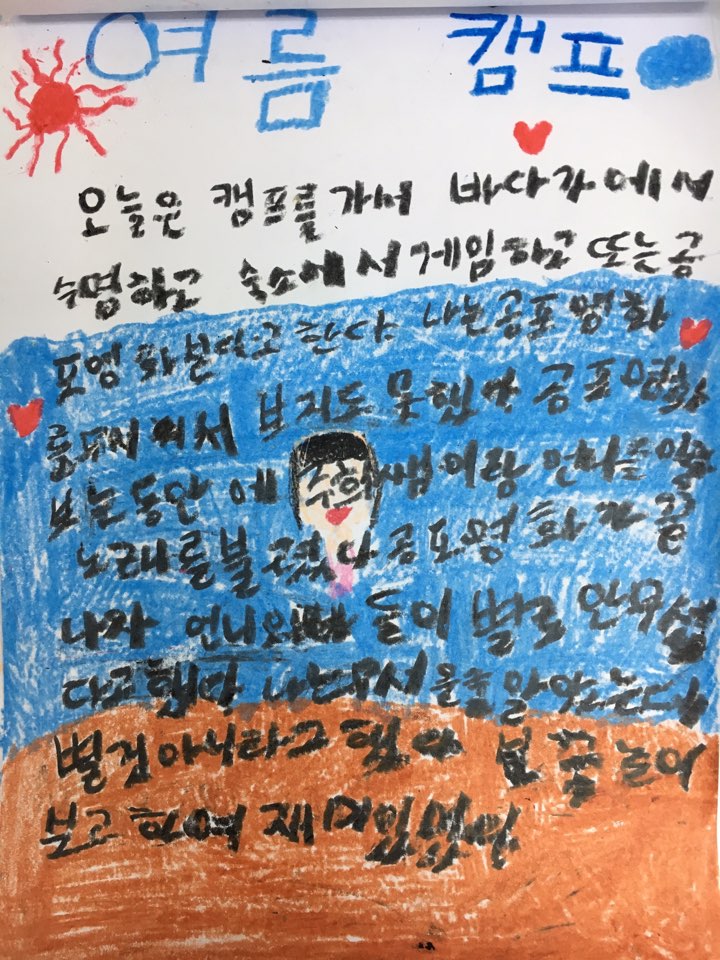 여름 캠프
오늘은 캠프를 가서 바다가에서
수영하고 숙소에서 게임하고 또는 공
포영화본다고 한다 나는 공포영화
를 무서워서 보지도 못했다 공포영화
보는동안 에 수희쌤이랑 언니들이랑
노래를 불렀다 공포영화가 끝
나자 언니오빠 들이 별로 안무섭
다고 했다 나는 무서울줄 알았는데
별것아니라고 했다 불꽃놀이
보고 하여 재미있었다